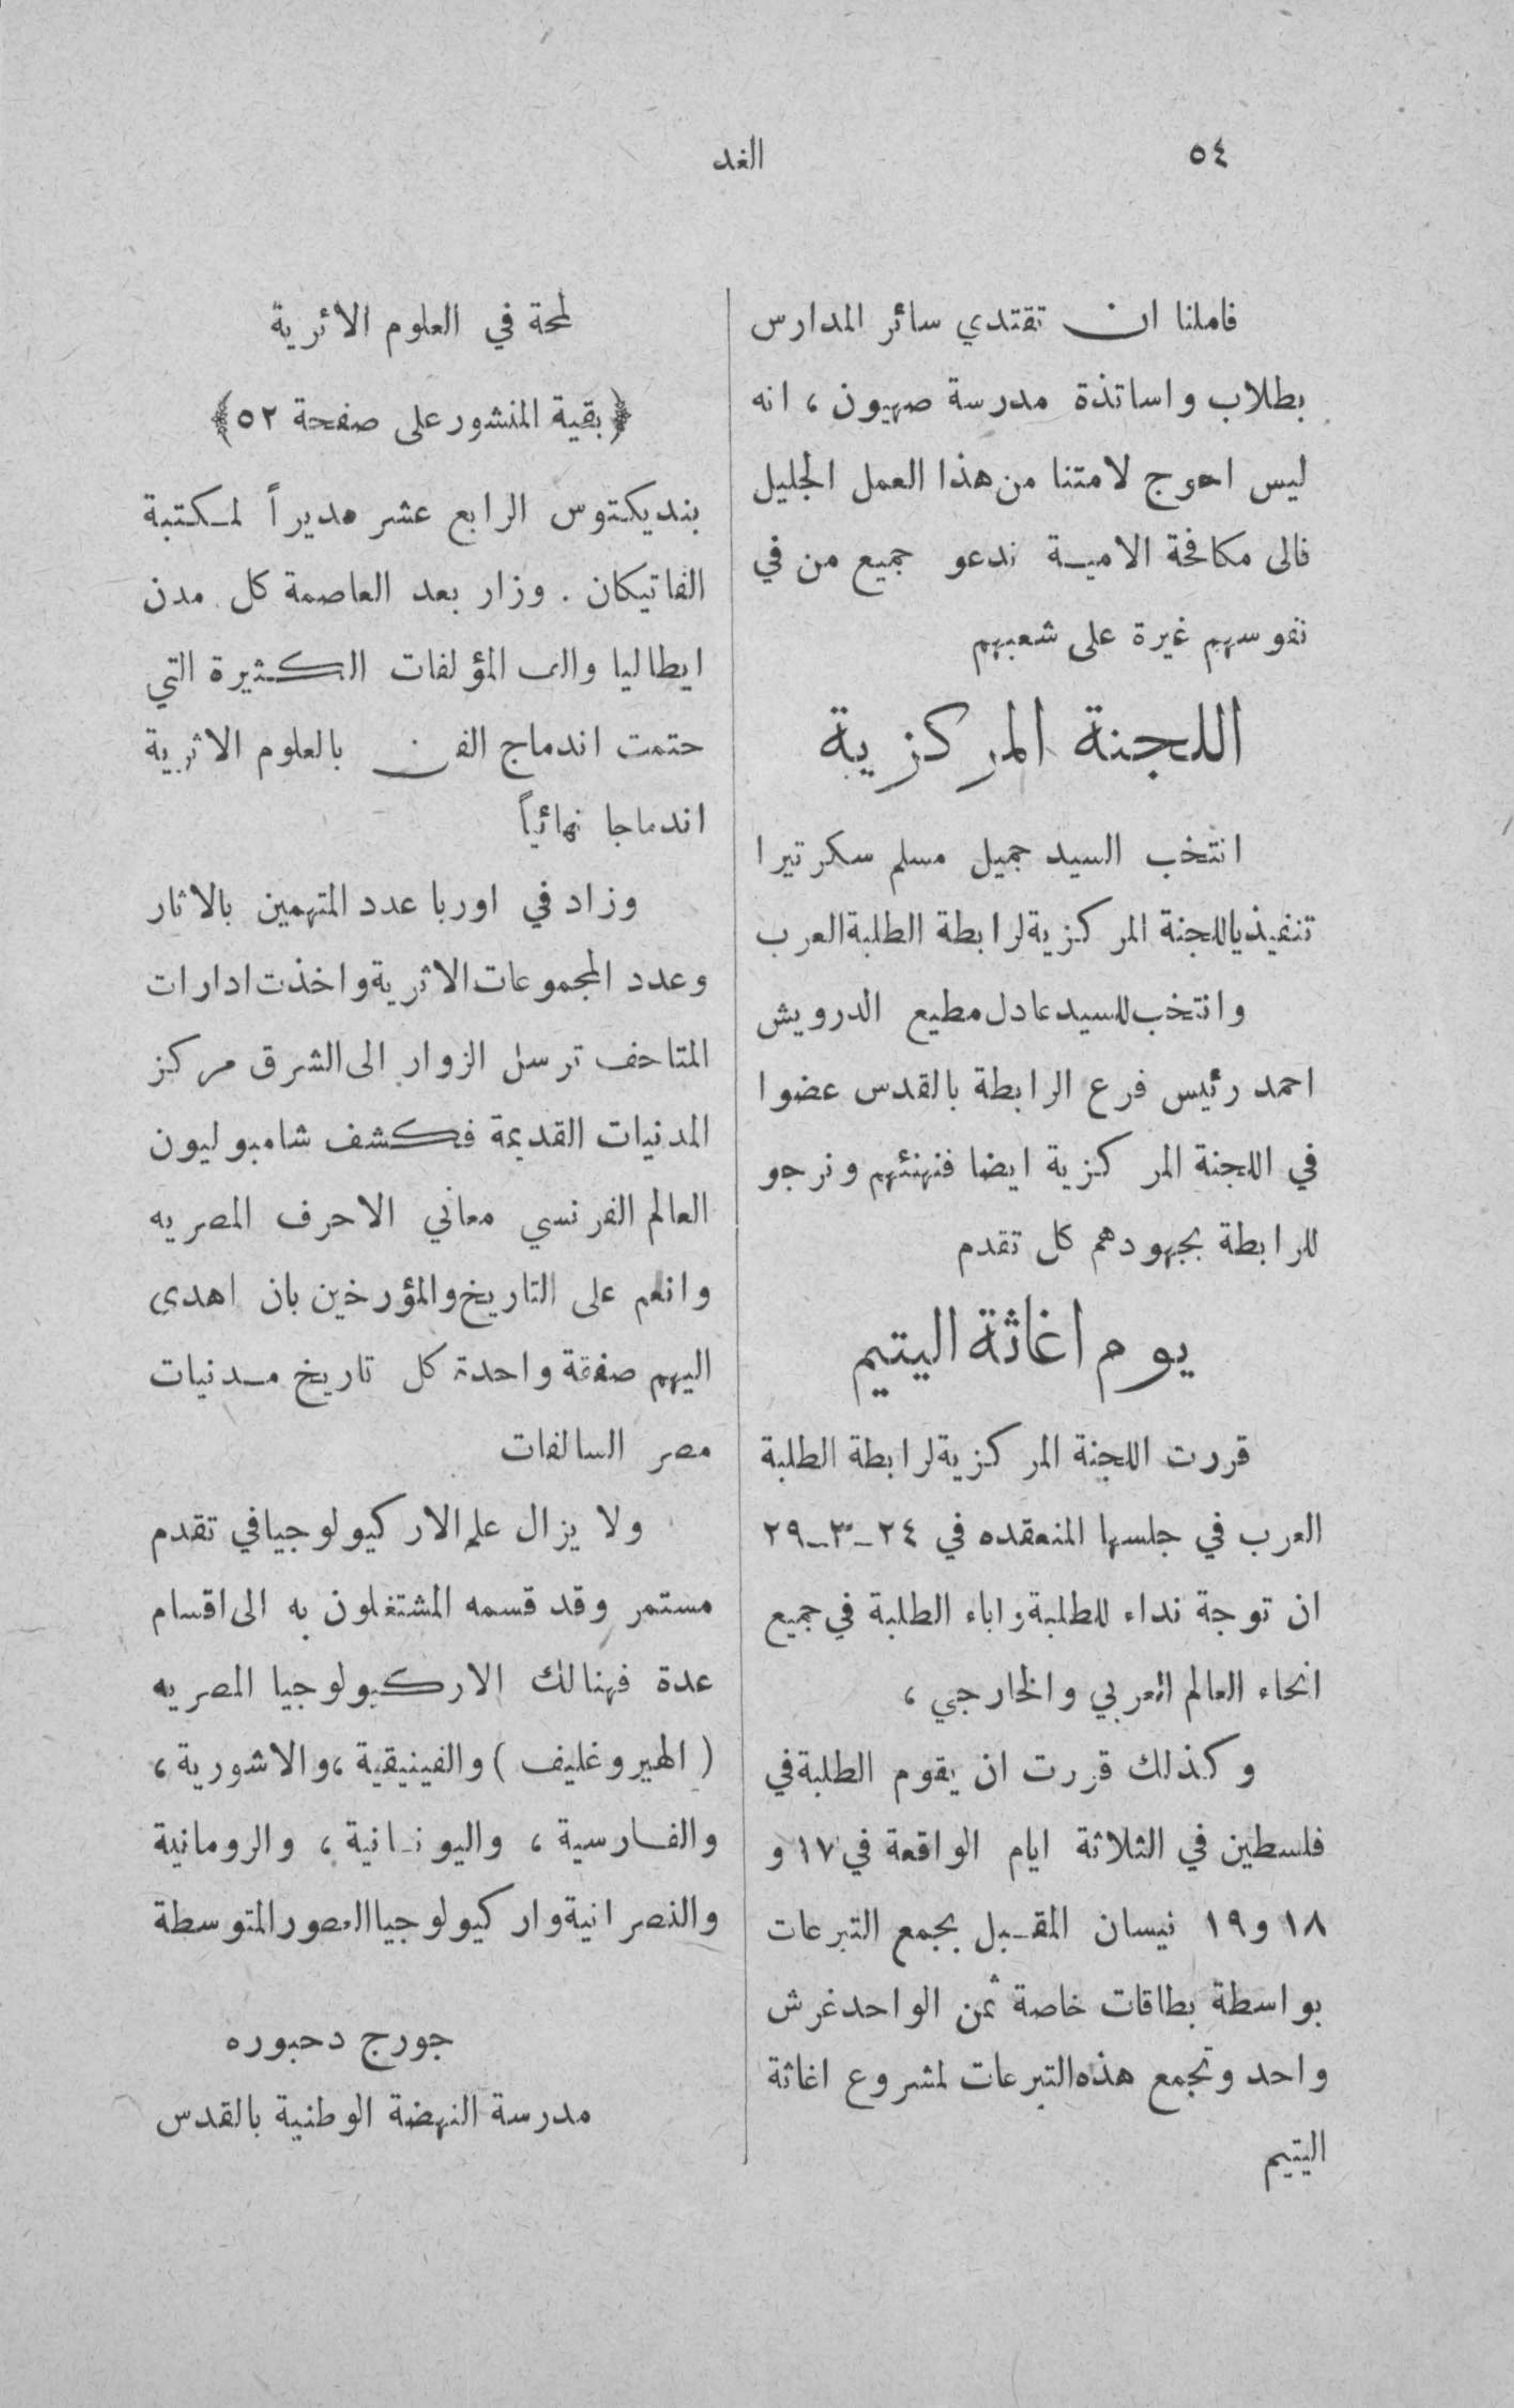 ٥٤
الغد
فاملنا ان تقتدي سائر المدارس
بطلاب واساتذة مدرسة صهيون، انه
ليس احوج لامتنا من هذا العمل الجليل
فالى مكافحة الامية ندعو جميع من في
نفوسهم غيرة على شعبهم
اللجنة المركزية
انتخب السيد جميل مسلم سكرتيرا
تنفيذيا للجنة المركزية لرابطة الطلبة العرب
وانتخب للسيد عادل مطيع الدرويش
احمد رئيس فرع الرابطة بالقدس عضوا
في اللجنة المركزية ايضا فنهنئهم ونرجو
للرابطة بجهودهم كل تقدم
يوم اغاثة اليتيم
قررت اللجنة المركزية لرابطة الطلبة
العرب في جلسها المنعقده في ٢٤-٣-٢٩
ان توجة نداء للطلبة واباء الطلبة في جميع
انحاء العالم العربي والخارجي،
وكذلك قررت ان يقوم الطلبة في
فلسطين في الثلاثة ايام الواقعة في ١٧ و
١٨ و ١٩ نيسان المقبل بجمع التبرعات
بواسطة بطاقات خاصة ثمن الواحد غرش
واحد وتجمع هذه التبرعات لمشروع اغاثة
اليتيم
لمحة في العلوم الاثرية
﴿بقية المنشور على صفحة ٥٢﴾
بنديكتوس الرابع عشر مديراً لمكتبة
الفاتيكان. وزار بعد العاصمة كل مدن
ايطاليا والف المؤلفات الكثيرة التي
حتمت اندماج الفن بالعلوم الاثرية
اندماجا نهائياً
وزاد في اوربا عدد المتهمين بالاثار
وعدد المجموعات الاثرية واخذت ادارات
المتاحف ترسل الزوار الى الشرق مركز
المدنيات القديمة فكشف شامبوليون
العالم الفرنسي معاني الاحرف المصريه
وانعم على التاريخ والمؤرخين بان اهدى
اليهم صفقة واحدة كل تاريخ مدنيات
مصر السالفات
ولا يزال علم الاركيولوجيا في تقدم
مستمر وقد قسمه المشتغلون به الى اقسام
عدة فهنالك الاركيولوجيا المصريه
(الهيروغليف) والفينيقية، والاشورية،
والفارسية، واليونانية، والرومانية
والنصرانية واركيولوجيا العصور المتوسطة
جورج دحبوره
مدرسة النهضة الوطنية بالقدس